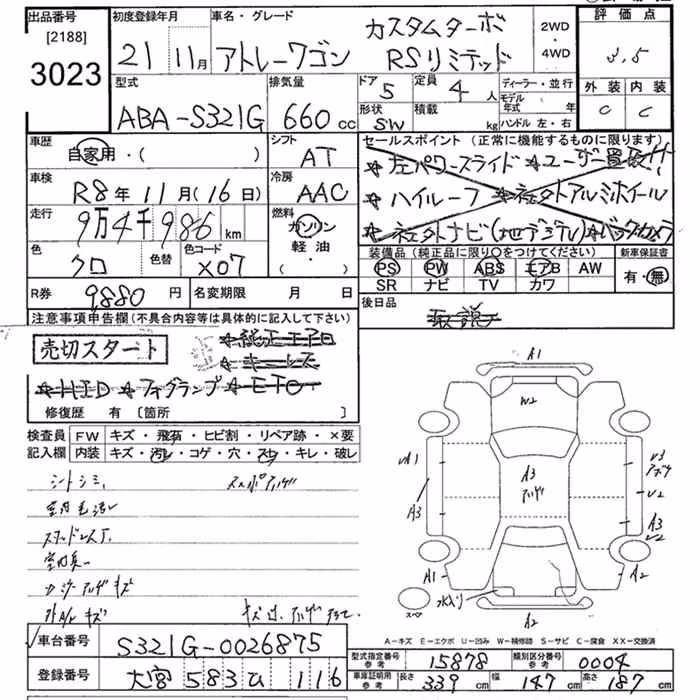 出品番号 初度登録年月 車名・グレード カスタムターボ 2WD・4WD 評価点
[2188] 3023 21 11月 アトレーワゴン RSリミテッド 3.5
型式 排気量 ドア 5 定員 4人 ディーラー・並行 外装 内装
モデル年式 年
ABA-S321G 660cc 形状 SW 積載 kg ハンドル 左・右 C C
車歴 シフト セールスポイント (正常に機能するものに限ります)
自家用・( ) AT ★左パワースライド ★ユーザー買取
車検 冷房
R8年11月(16日) AAC ★ハイルーフ ★社外アルミホイール
走行 燃料
9万4千986km ガソリン ★社外ナビ(地デジTV) ★バックカメラ
色 色替 色コード 軽油・( ) 装備品(純正品に限り○をつけてください) 新車保証書
クロ X07 PS PW ABS エアB AW 有・無
SR ナビ TV カワ
R券 9880円 名変期限 月 日 後日品 取説
注意事項申告欄(不具合内容等は具体的に記入して下さい)
売切スタート ★純正エアロ
★キーレス
★HID ★フォグランプ ★ETC
修復歴 有 [箇所 ]
検査員 FW キズ・飛石・ヒビ割・リペア跡・×要
記入欄 内装 キズ・汚レ・コゲ・穴・スレ・キレ・破レ
シートシミ
室内毛
スタッドレス
キズ
外A/W キズ キズ
A1
W2
A3
A3
A3
U2
A1
A2
水入り
スペア
A2
A－キズ E－エクボ U－凹み W－補修跡 S－サビ C－腐食 XX－交換済
車台番号 S321G-0026875
型式指定番号 参考 15878 類別区分番号 参考 0004
登録番号 大宮 583 ひ 116
車庫証明用 参考 長さ 339cm 幅 147cm 高さ 187cm